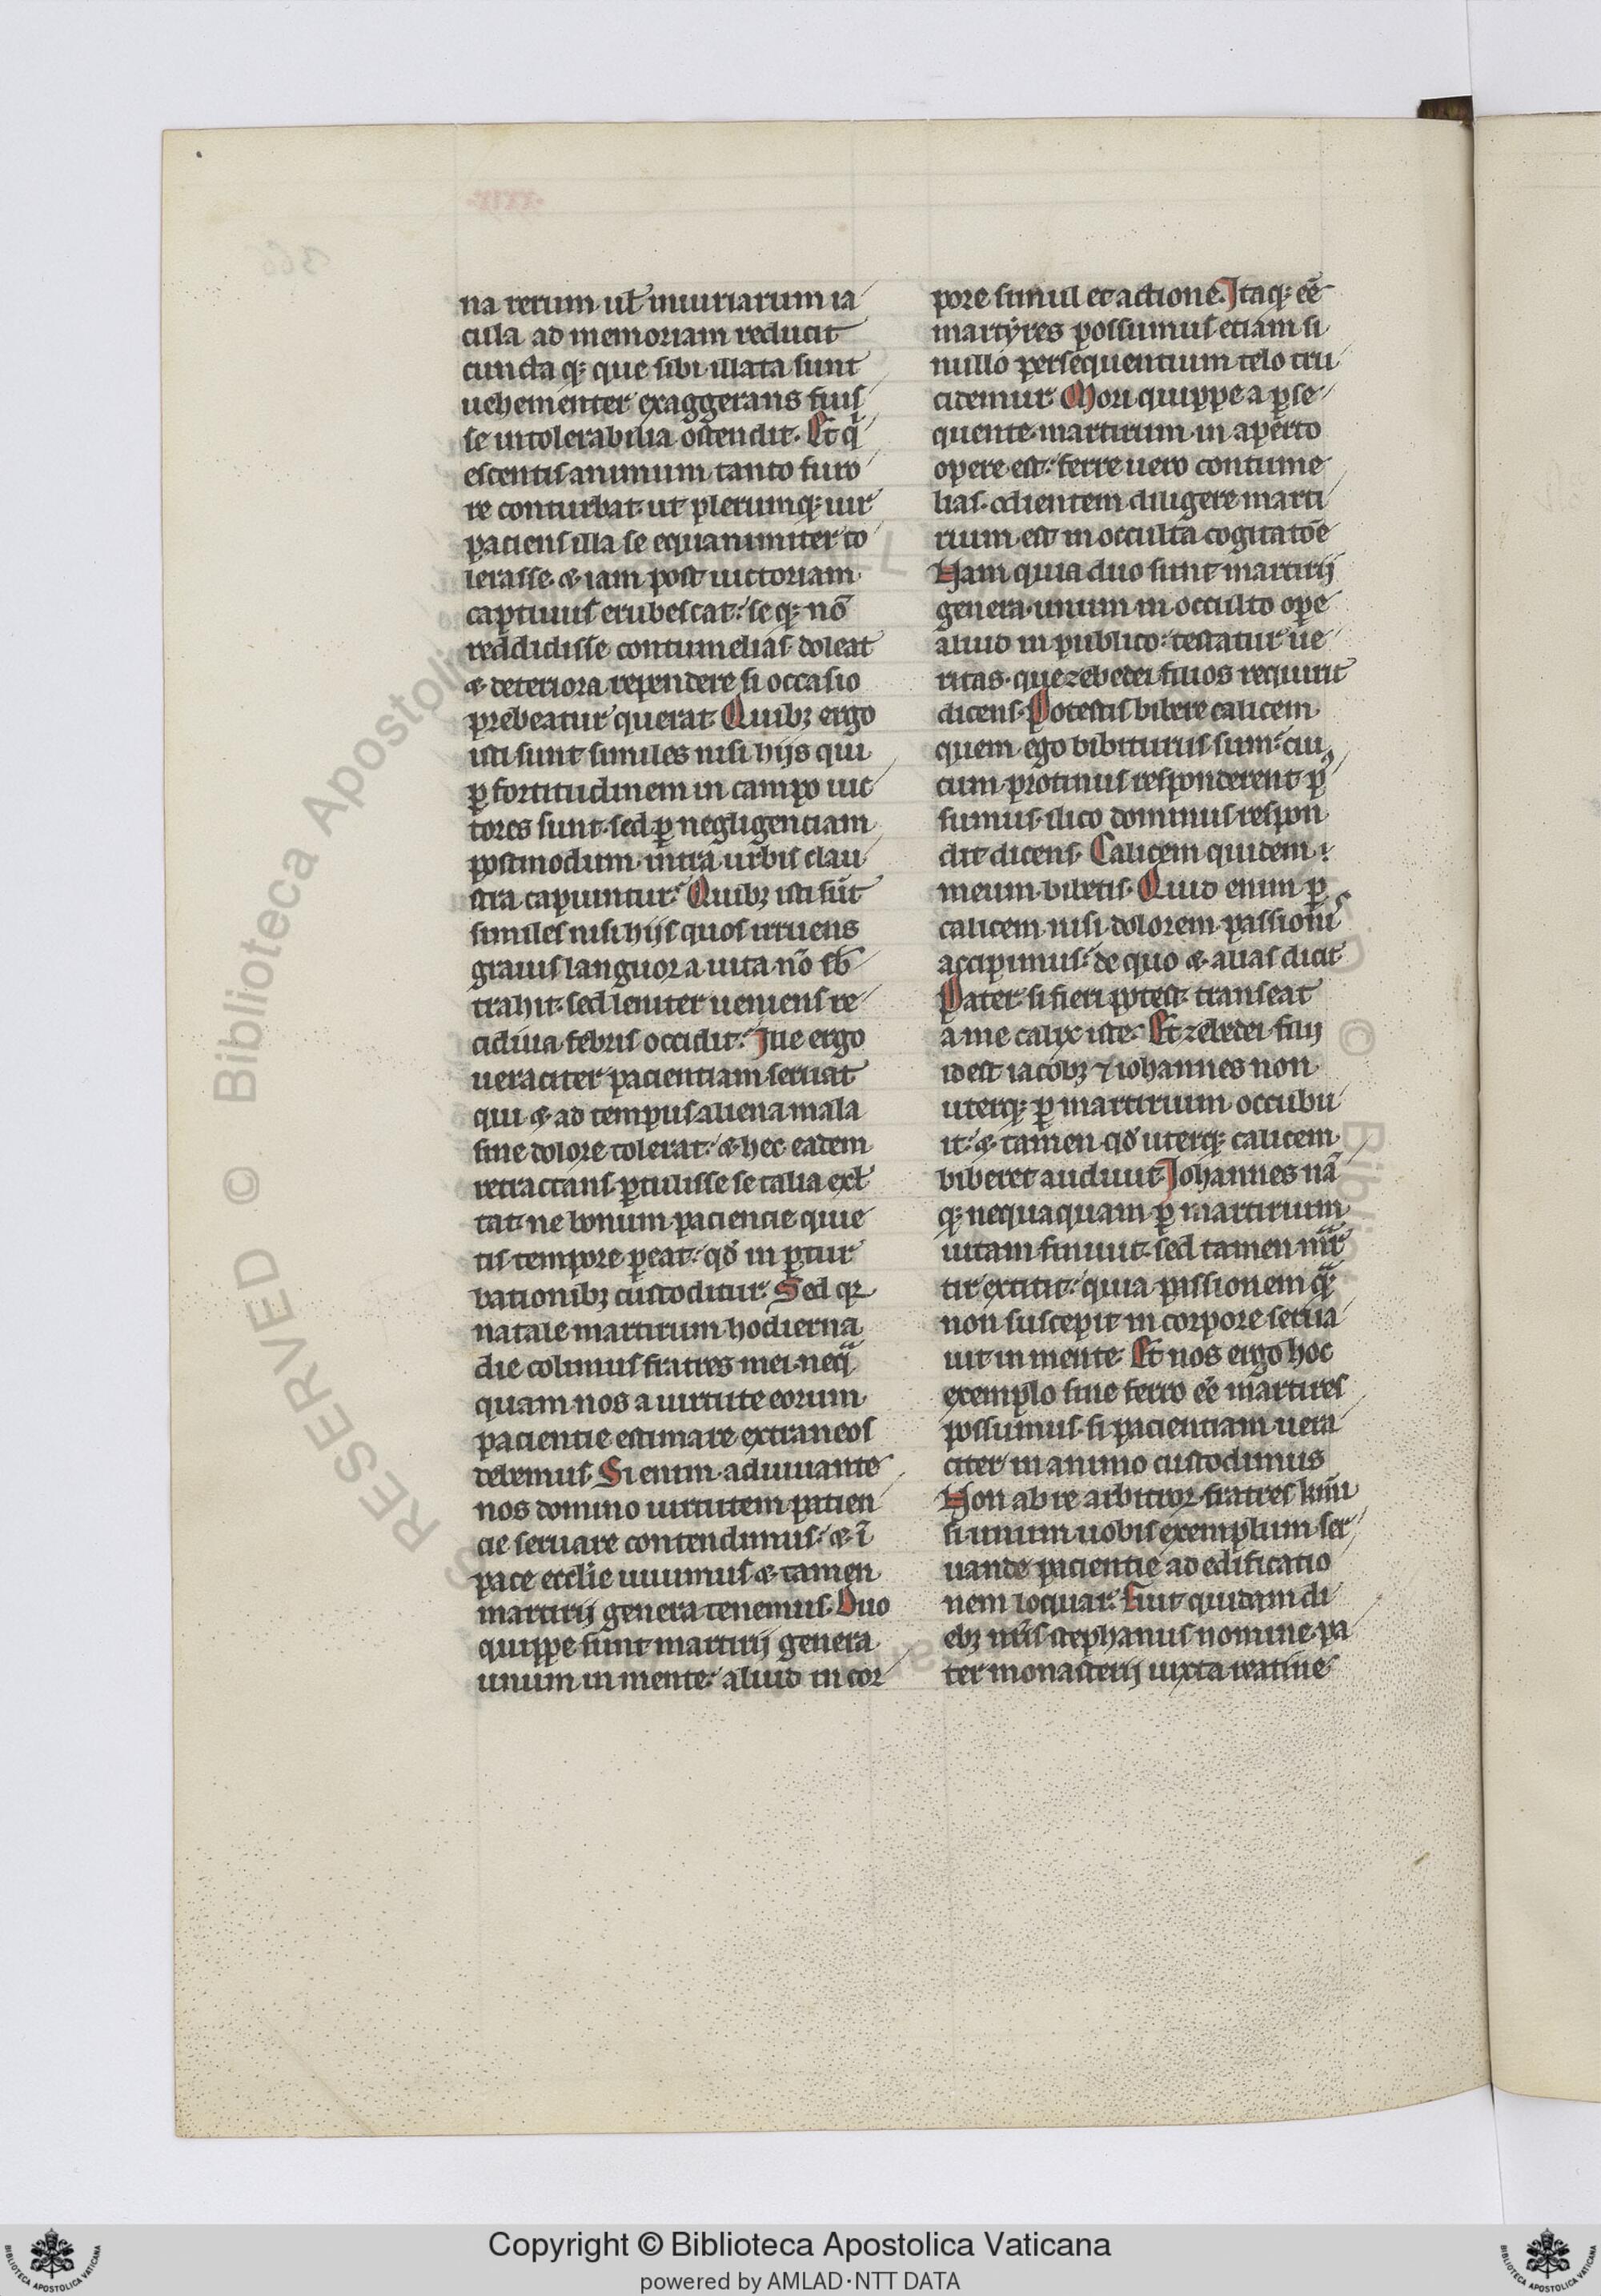 na rerum ul̄ iniuriarum ia
cula ad memoriam reducit
cuncta q; que sibi illata sunt
uehementer exaggerans fuis
se intolerabilia ostendit. Et q̇
escentis animum tanto furo
re conturbat. ut plerumq; uir
paciens illa se equanimiter to
lerasse. & iam post uictoriam
captiuus erubescat: se q; nō
reddidisse contumelias doleat
& deteriora rependere si occasio
prebeatur querat. Quibꝫ ergo
isti sunt similes nisi hijs qui
ꝑ fortitudinem in campo uic
tores sunt. sed ꝑ negligenciam
postmodum intra urbis clau
stra capiuntur? Quibꝫ isti sūt
similes nisi hijs quos irruens
grauis languor a uita nō sb̄
trahit. sed leniter ueniens re
cidiua febris occidit. Ille ergo
ueraciter pacientiam seruat
qui & ad tempus aliena mala
sine dolore tolerat: & hec eadem
retractans ꝑtulisse se talia exl̄
tat. ne bonum paciencie quie
tis tempore ꝑeat. qđ in ꝑtur
bationibꝫ custoditur. Sed qꝛ
natale martirum hodierna
die colimus fratres mei. neq̃
quam nos a uirtute eorum
pacientie estimare extraneos
debemus. Si enim adiuuante
nos domino uirtutem patien
cie seruare contendimus: & ī
pace ecclie uiuimus & tamen
martirij genera tenemus. Duo
quippe sunt martirij genera
unum in mente: aliud in cor
pore simul et actione. Itaq; eē
martyres possumus etiam si
nullo persequentium telo tru
cidemur. Mori quippe a ꝑse
quente martirium in aperto
opere est: ferre uero contume
lias. odientem diligere marti
rium est in occulta cogitatōe
Nam quia duo sunt martirij
genera. unum in occulto ope
aliud in publico: testatur ue
ritas. que zebedei filios requirit
dicens. Potestis bibere calicem
quem ego bibiturus sum: cui
cum protinus responderent p⁹
sumus. ilico dominus respon
dit dicens. Calicem quidem
meum bibetis. Quid enim ꝑ
calicem nisi dolorem passionis
accipimus: de quo & alias dicit
Pater si fieri potest. transeat
a me calix iste. Et zebedei filij
idest iacobꝫ ⁊ iohannes non
uterq; ꝑ martirium occubu
it: & tamen qđ uterq; calicem
biberet audiuit. Johannes nā
q; nequaquam ꝑ martirium
uitam finiuit. sed tamen mar
tir extitit: quia passionem q̃;
non suscepit in corpore serua
uit in mente. Et nos ergo hoc
exemplo sine ferro eē martires
possumus. si pacientiam uera
citer in animo custodimus
Non ab re arbitror fratres kmi
si unum uobis exemplum ser
uande pacientie ad edificatio
nem loquar. Fuit quidam di
ebꝫ nr̄is stephanus nomine pa
ter monasterij iuxta reatine
Copyright © Biblioteca Apostolica Vaticana
powered by AMLAD·NTT DATA